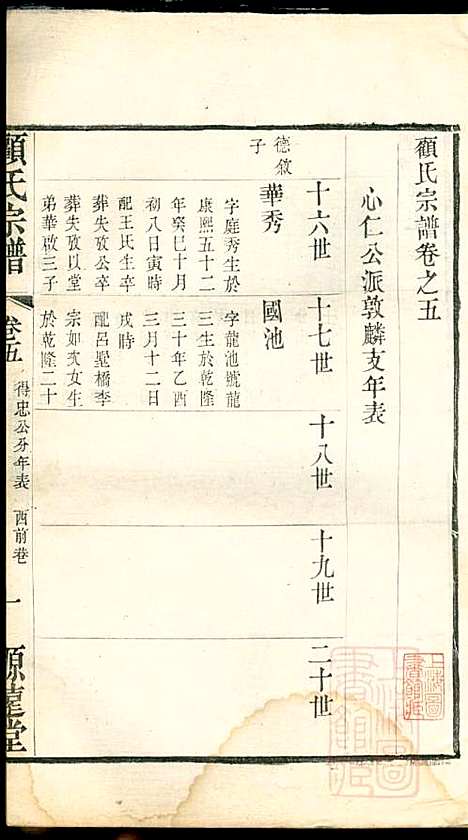 顧氏宗譜卷之五
心仁公派敦麟支年表
十六世
十七世
十八世
十九世
二十世
德敘
子
華秀
字庭秀生於
康熙五十二
年癸巳十月
初八日寅時
配王氏生卒
葬失攷公卒
葬失攷以堂
弟華啟三子
國池
字龍池號龍
三生於乾隆
三十年乙酉
三月十二日
戌時
配呂墅橋李
宗如次女生
於乾隆二十
顧氏宗譜
卷五
得忠公分年表
西前巷
一
源遠堂
上海圖
書館藏